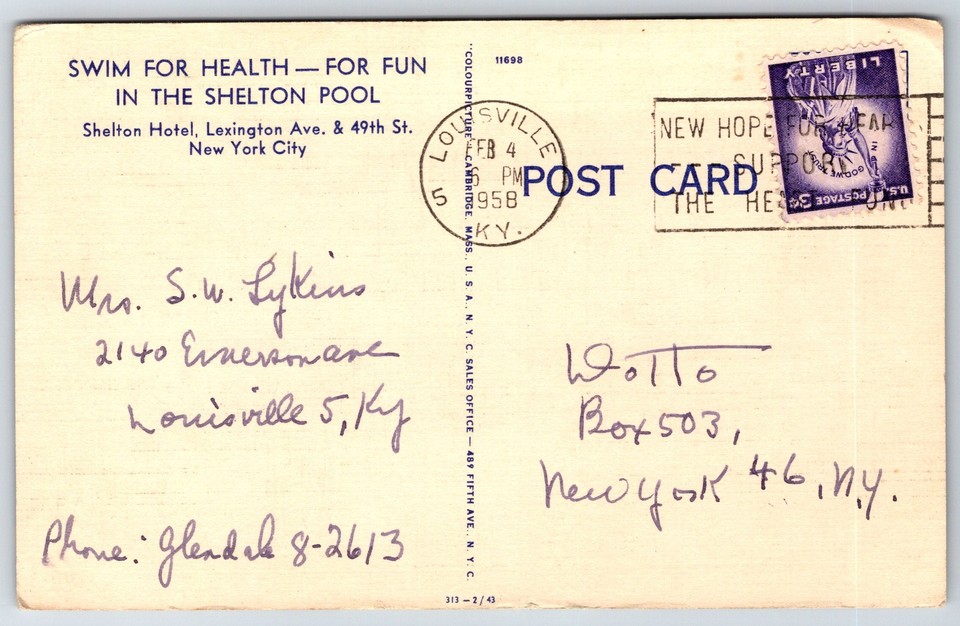 SWIM FOR HEALTH — FOR FUN
IN THE SHELTON POOL
Shelton Hotel, Lexington Ave. & 49th St.
New York City
11698
"COLOURPICTURE" CAMBRIDGE, MASS., U. S. A., N. Y. C. SALES OFFICE — 489 FIFTH AVE., N. Y. C.
LOUISVILLE
FEB 4
6 PM
1958
5 KY.
POST CARD
NEW HOPE FOR HEARTS
SUPPORT
THE HEART FUND
LIBERTY
IN GOD WE TRUST
U.S. POSTAGE 3¢
Mrs. S.W. Lykins
2140 Emerson ave
Louisville 5, Ky
Phone: Glendale 8-2613
Dotto
Box 503,
New York 46, N.Y.
313 — 2/43